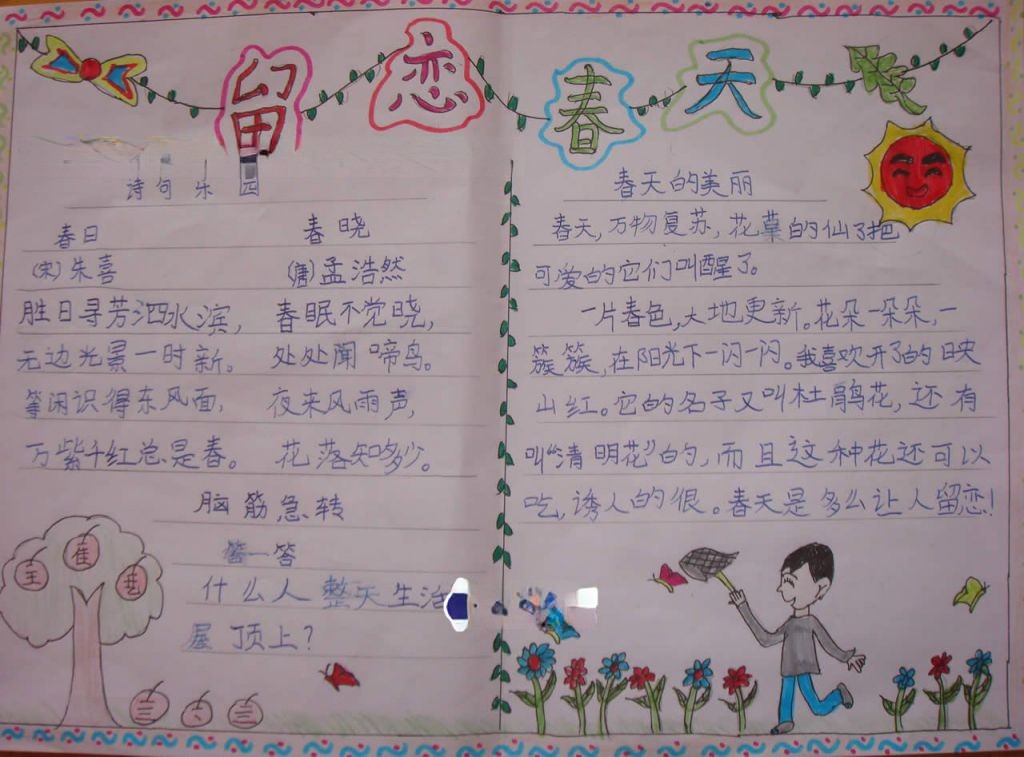 留恋春天
诗句乐园
春日
(宋)朱喜
胜日寻芳泗水滨,
无边光景一时新。
等闲识得东风面,
万紫千红总是春。
春晓
(唐)孟浩然
春眠不觉晓,
处处闻啼鸟。
夜来风雨声,
花落知多少。
脑筋急转
答一答
什么人整天生活
屋顶上?
春天的美丽
春天,万物复苏,花草的仙子把
可爱的它们叫醒了。
一片春色,大地更新。花朵一朵朵,一
簇簇,在阳光下一闪一闪。我喜欢开了的映
山红。它的名子又叫杜鹃花,还有
叫“清明花”的,而且这种花还可以
吃,诱人的很。春天是多么让人留恋!